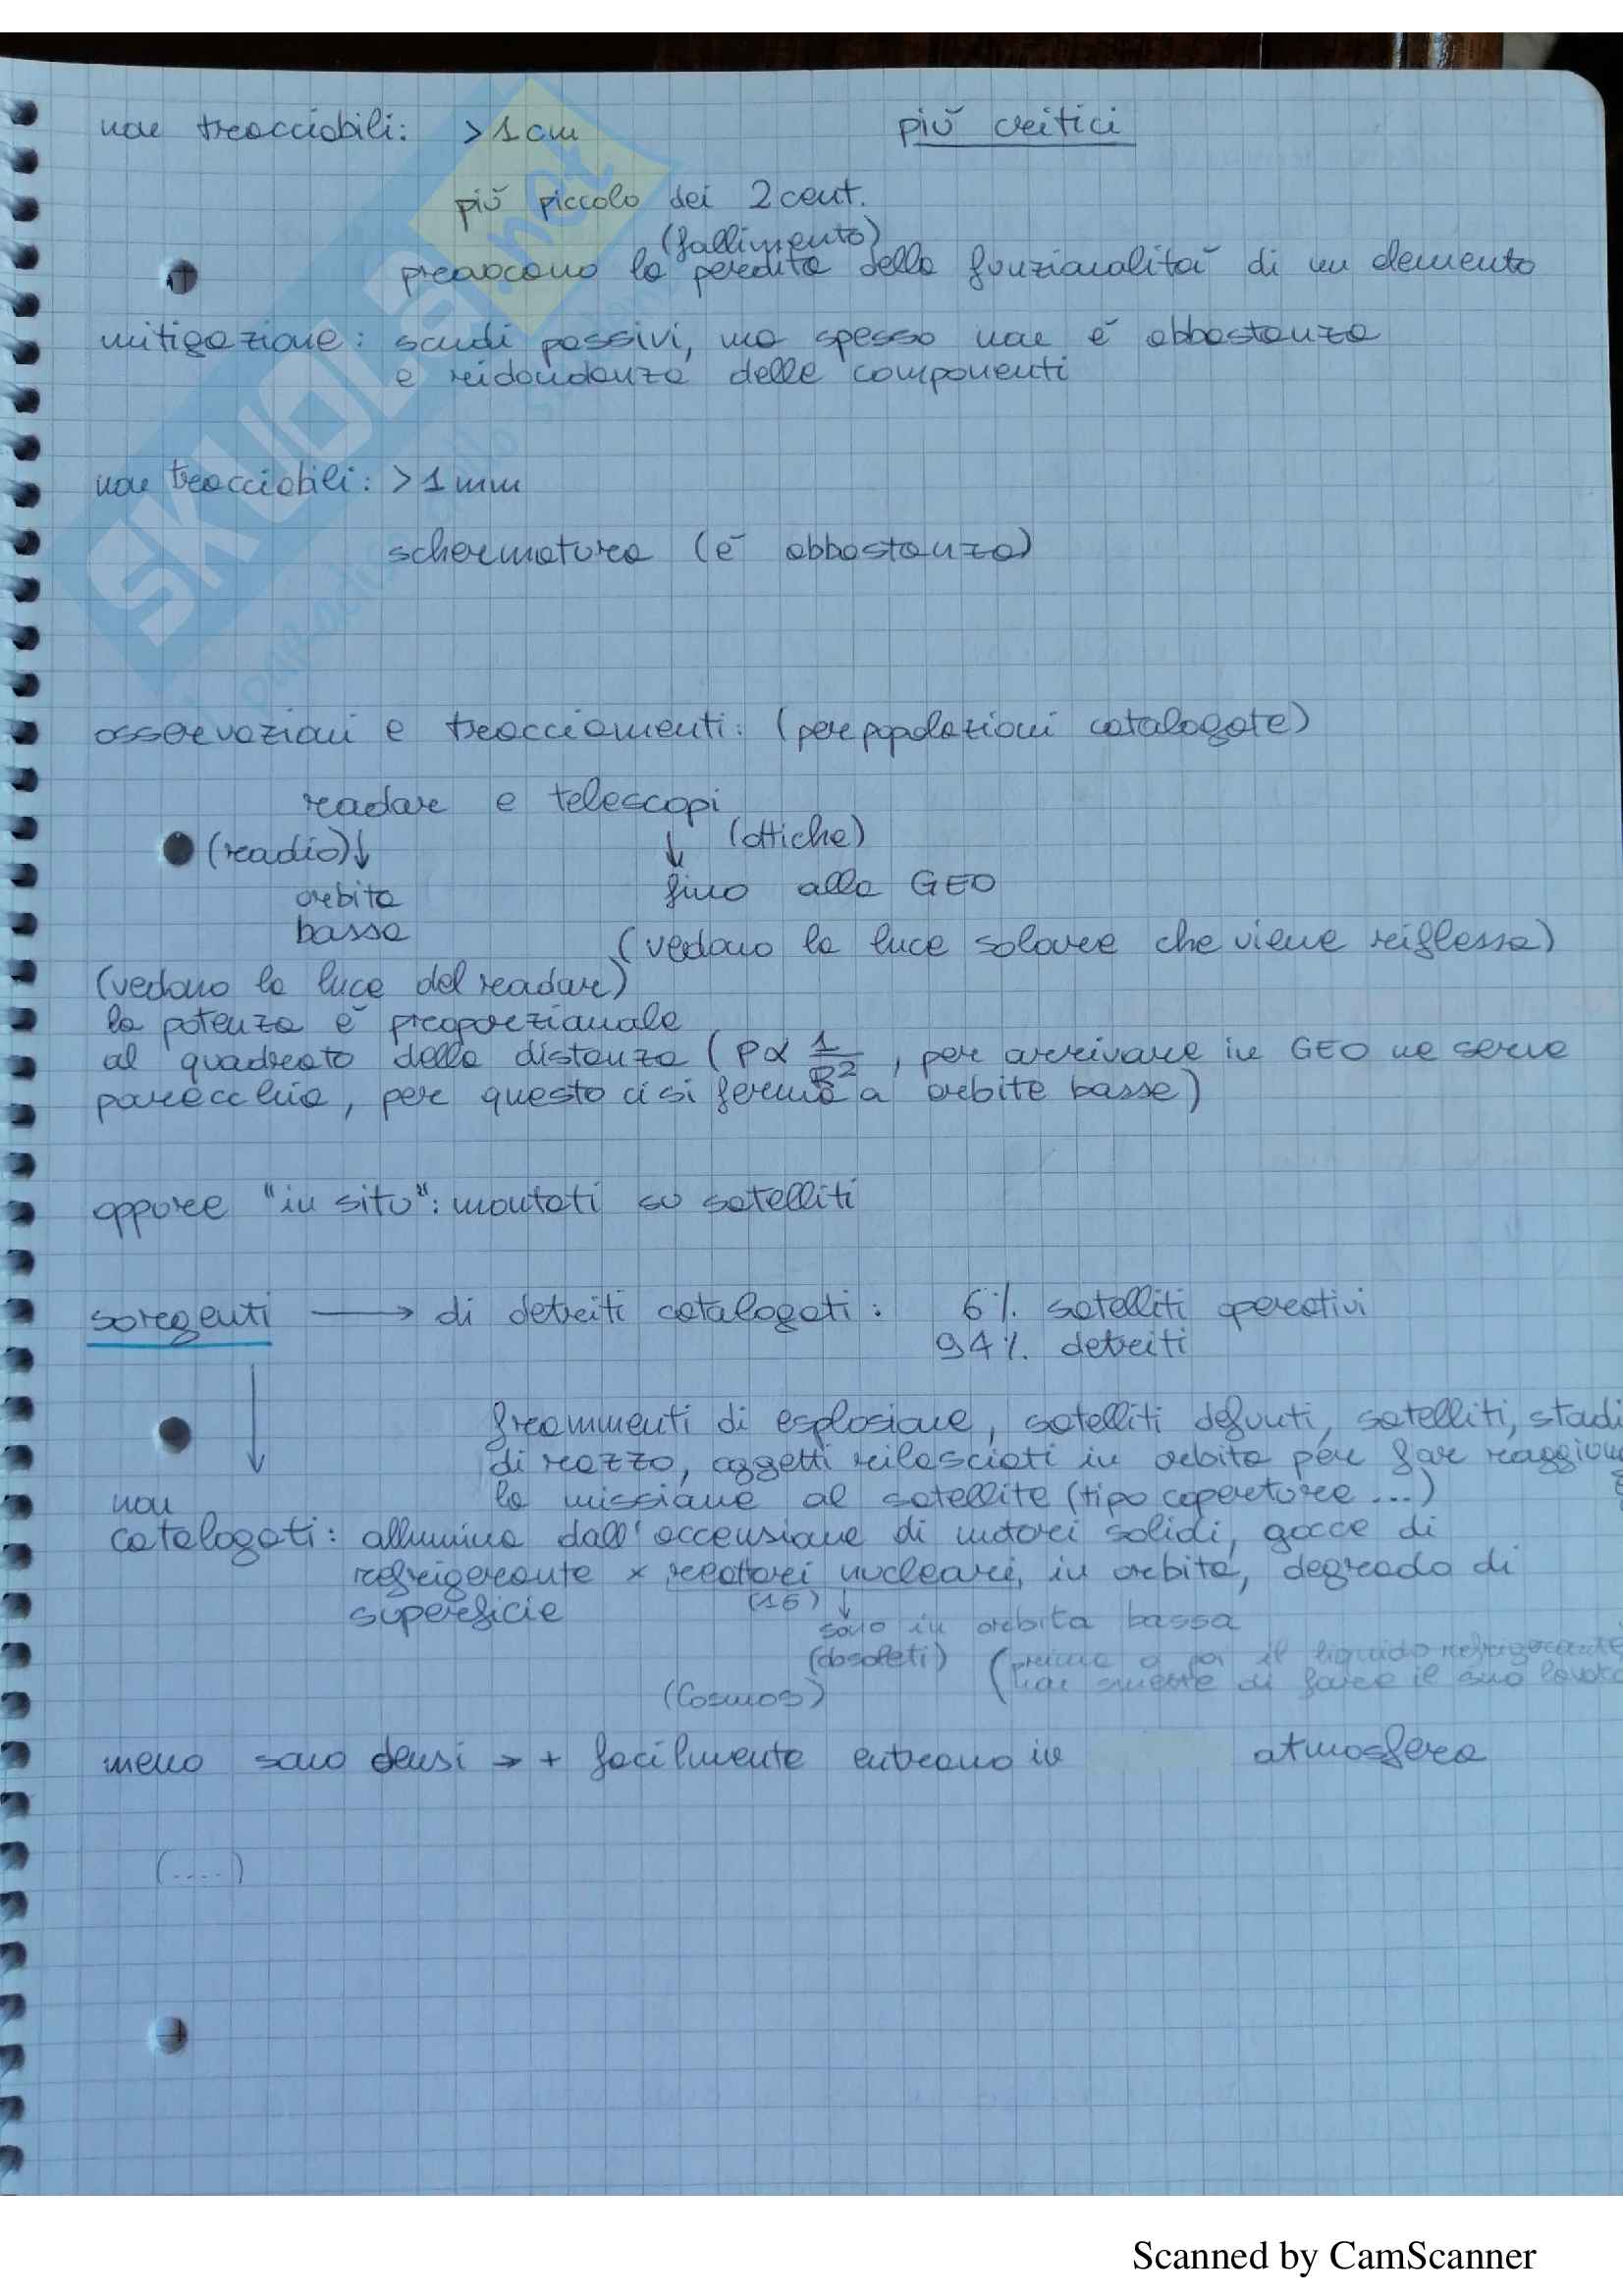 non tracciabili: >1cm più critici
più piccolo dei 2 cent.
(fallimento)
provocano la perdita della funzionalità di un elemento
mitigazione: scudi passivi, ma spesso non è abbastanza
e ridondanza delle componenti
non tracciabili: >1mm
schermatura (è abbastanza)
osservazioni e tracciamenti: (per popolazioni catalogate)
radar e telescopi
(radio)↓ ↓ (ottiche)
orbita fino alla GEO
bassa
(vedono la luce solare che viene riflessa)
(vedono la luce del radar)
la potenza è proporzionale
al quadrato della distanza (P∝ 1/R², per arrivare in GEO ne serve
parecchia, per questo ci si ferma a orbite basse)
oppure "in situ": montati su satelliti
sorgenti → di detriti catalogati: 6% satelliti operativi
94% detriti
↓
frammenti di esplosione, satelliti defunti, satelliti, stadi
di razzo, oggetti rilasciati in orbita per far
non la missione al satellite (tipo coperture...)
catalogati: allumina dall'accensione di motori solidi, gocce di
refrigerante x reattori nucleari, in orbita, degrado di
superficie (16) ↓
sono in orbita bassa
(obsoleti) (prima o poi il liquido refrigerante
(Cosmos) smette di fare il suo
meno sono densi → + facilmente entrano in atmosfera
(....)
SKUOLA.net
Scanned by CamScanner